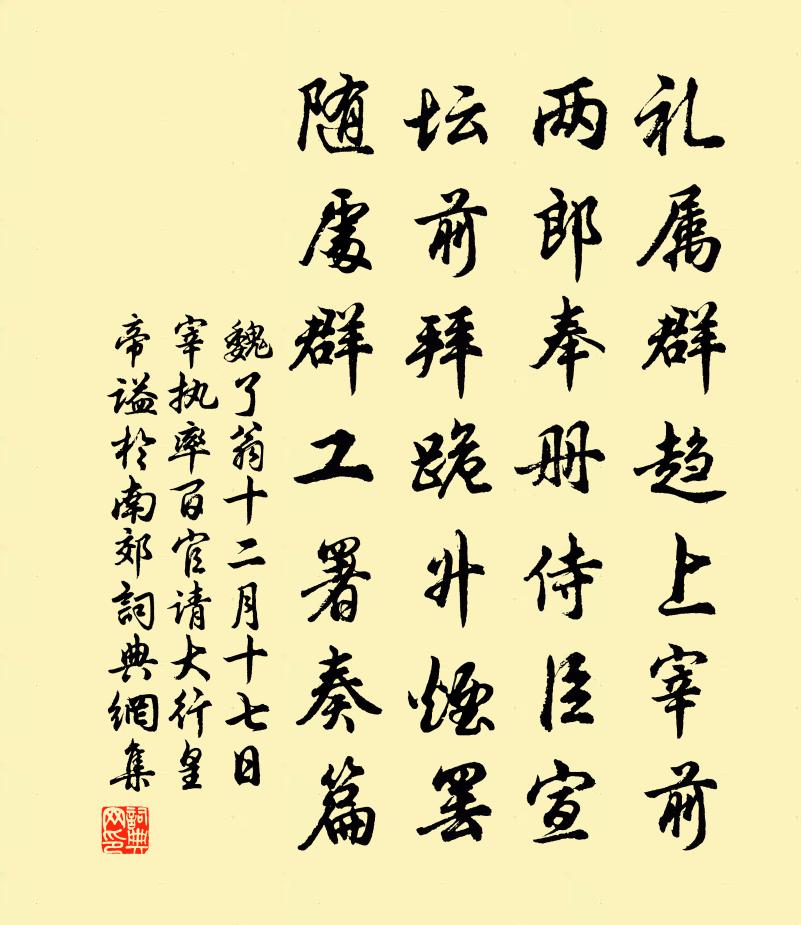 礼属群趋上宰前
两郎奉册侍臣宣
坛前拜跪升煙罢
随處群工署奏篇
魏了翁十二月十七日
宰执率百官请大行皇
帝谥於南郊詞典網集
詞典网印